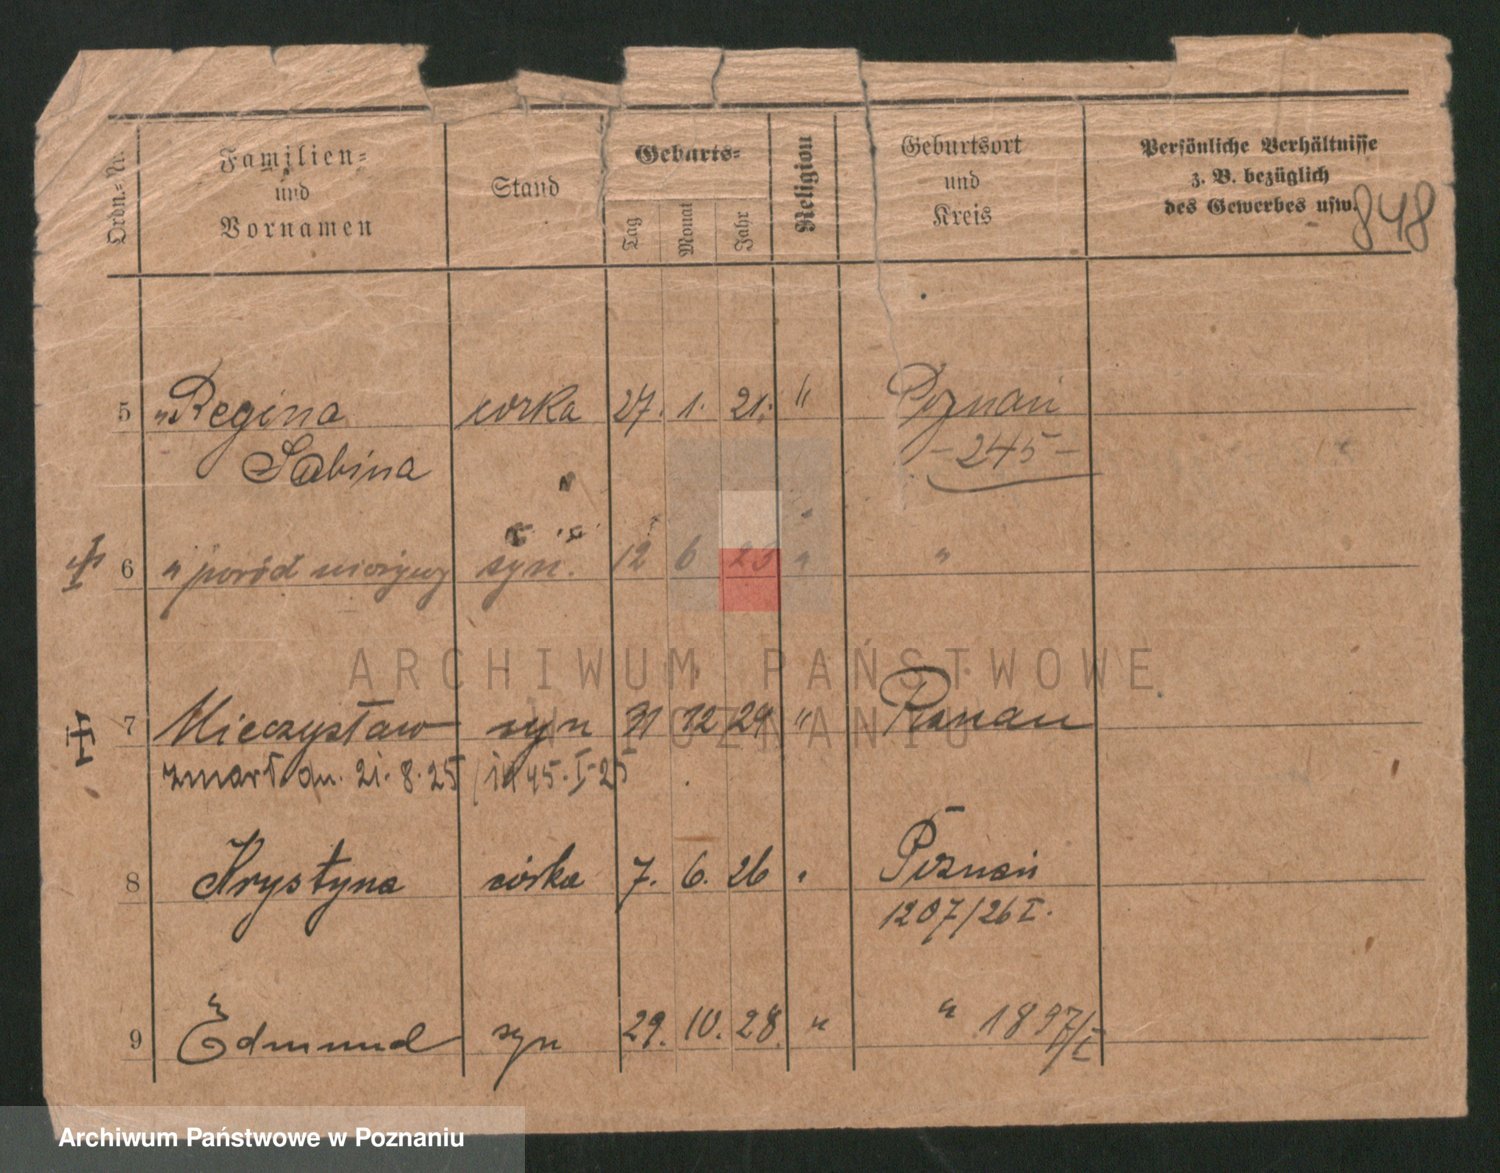 Ordn.-Nr.
Familien-
und
Vornamen
Stand
Geburts-
Tag
Monat
Jahr
Religion
Geburtsort
und
Kreis
Persönliche Verhältnisse
z. B. bezüglich
des Gewerbes usw.
848
5 „ Regina córka 27. 1. 21. „ Poznań
Sabina - 245 -
6 „ poród nieżywy syn. 12 6 23 „ „
ARCHIWUM PAŃSTWOWE
W POZNANIU
7 Mieczysław syn 31 12 24 „ Poznań
zmarł dn. 21. 8. 25 / 1445. I-25
8 Krystyna córka 7. 6. 26 „ Poznań
1207/26 I.
9 Edmund syn 29. 10. 28. „ „ 1897/I
Archiwum Państwowe w Poznaniu